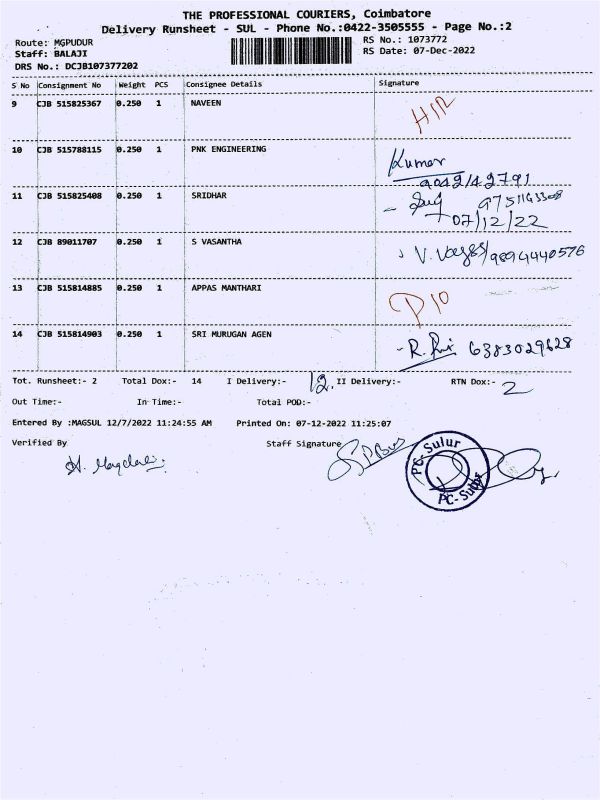 THE PROFESSIONAL COURIERS, Coimbatore
Delivery Runsheet - SUL - Phone No.:0422-3505555 - Page No.:2
Route: MGPUDUR
RS No.: 1073772
Staff: BALAJI
RS Date: 07-Dec-2022
DRS No.: DCJB107377202
S No Consignment No Weight PCS Consignee Details Signature
9 CJB 515825367 0.250 1 NAVEEN
10 CJB 515788115 0.250 1 PNK ENGINEERING Kumar
9042142791
11 CJB 515825408 0.250 1 SRIDHAR
07/12/22
12 CJB 89011707 0.250 1 S VASANTHA 9894440576
13 CJB 515814885 0.250 1 APPAS MANTHARI
14 CJB 515814903 0.250 1 SRI MURUGAN AGEN 6383029628
Tot. Runsheet:- 2 Total Dox:- 14 I Delivery:- 12. II Delivery:- RTN Dox:- 2
Out Time:- In Time:- Total POD:-
Entered By :MAGSUL 12/7/2022 11:24:55 AM Printed On: 07-12-2022 11:25:07
Verified By Staff Signature
PC-Sulur
PC-Sulur